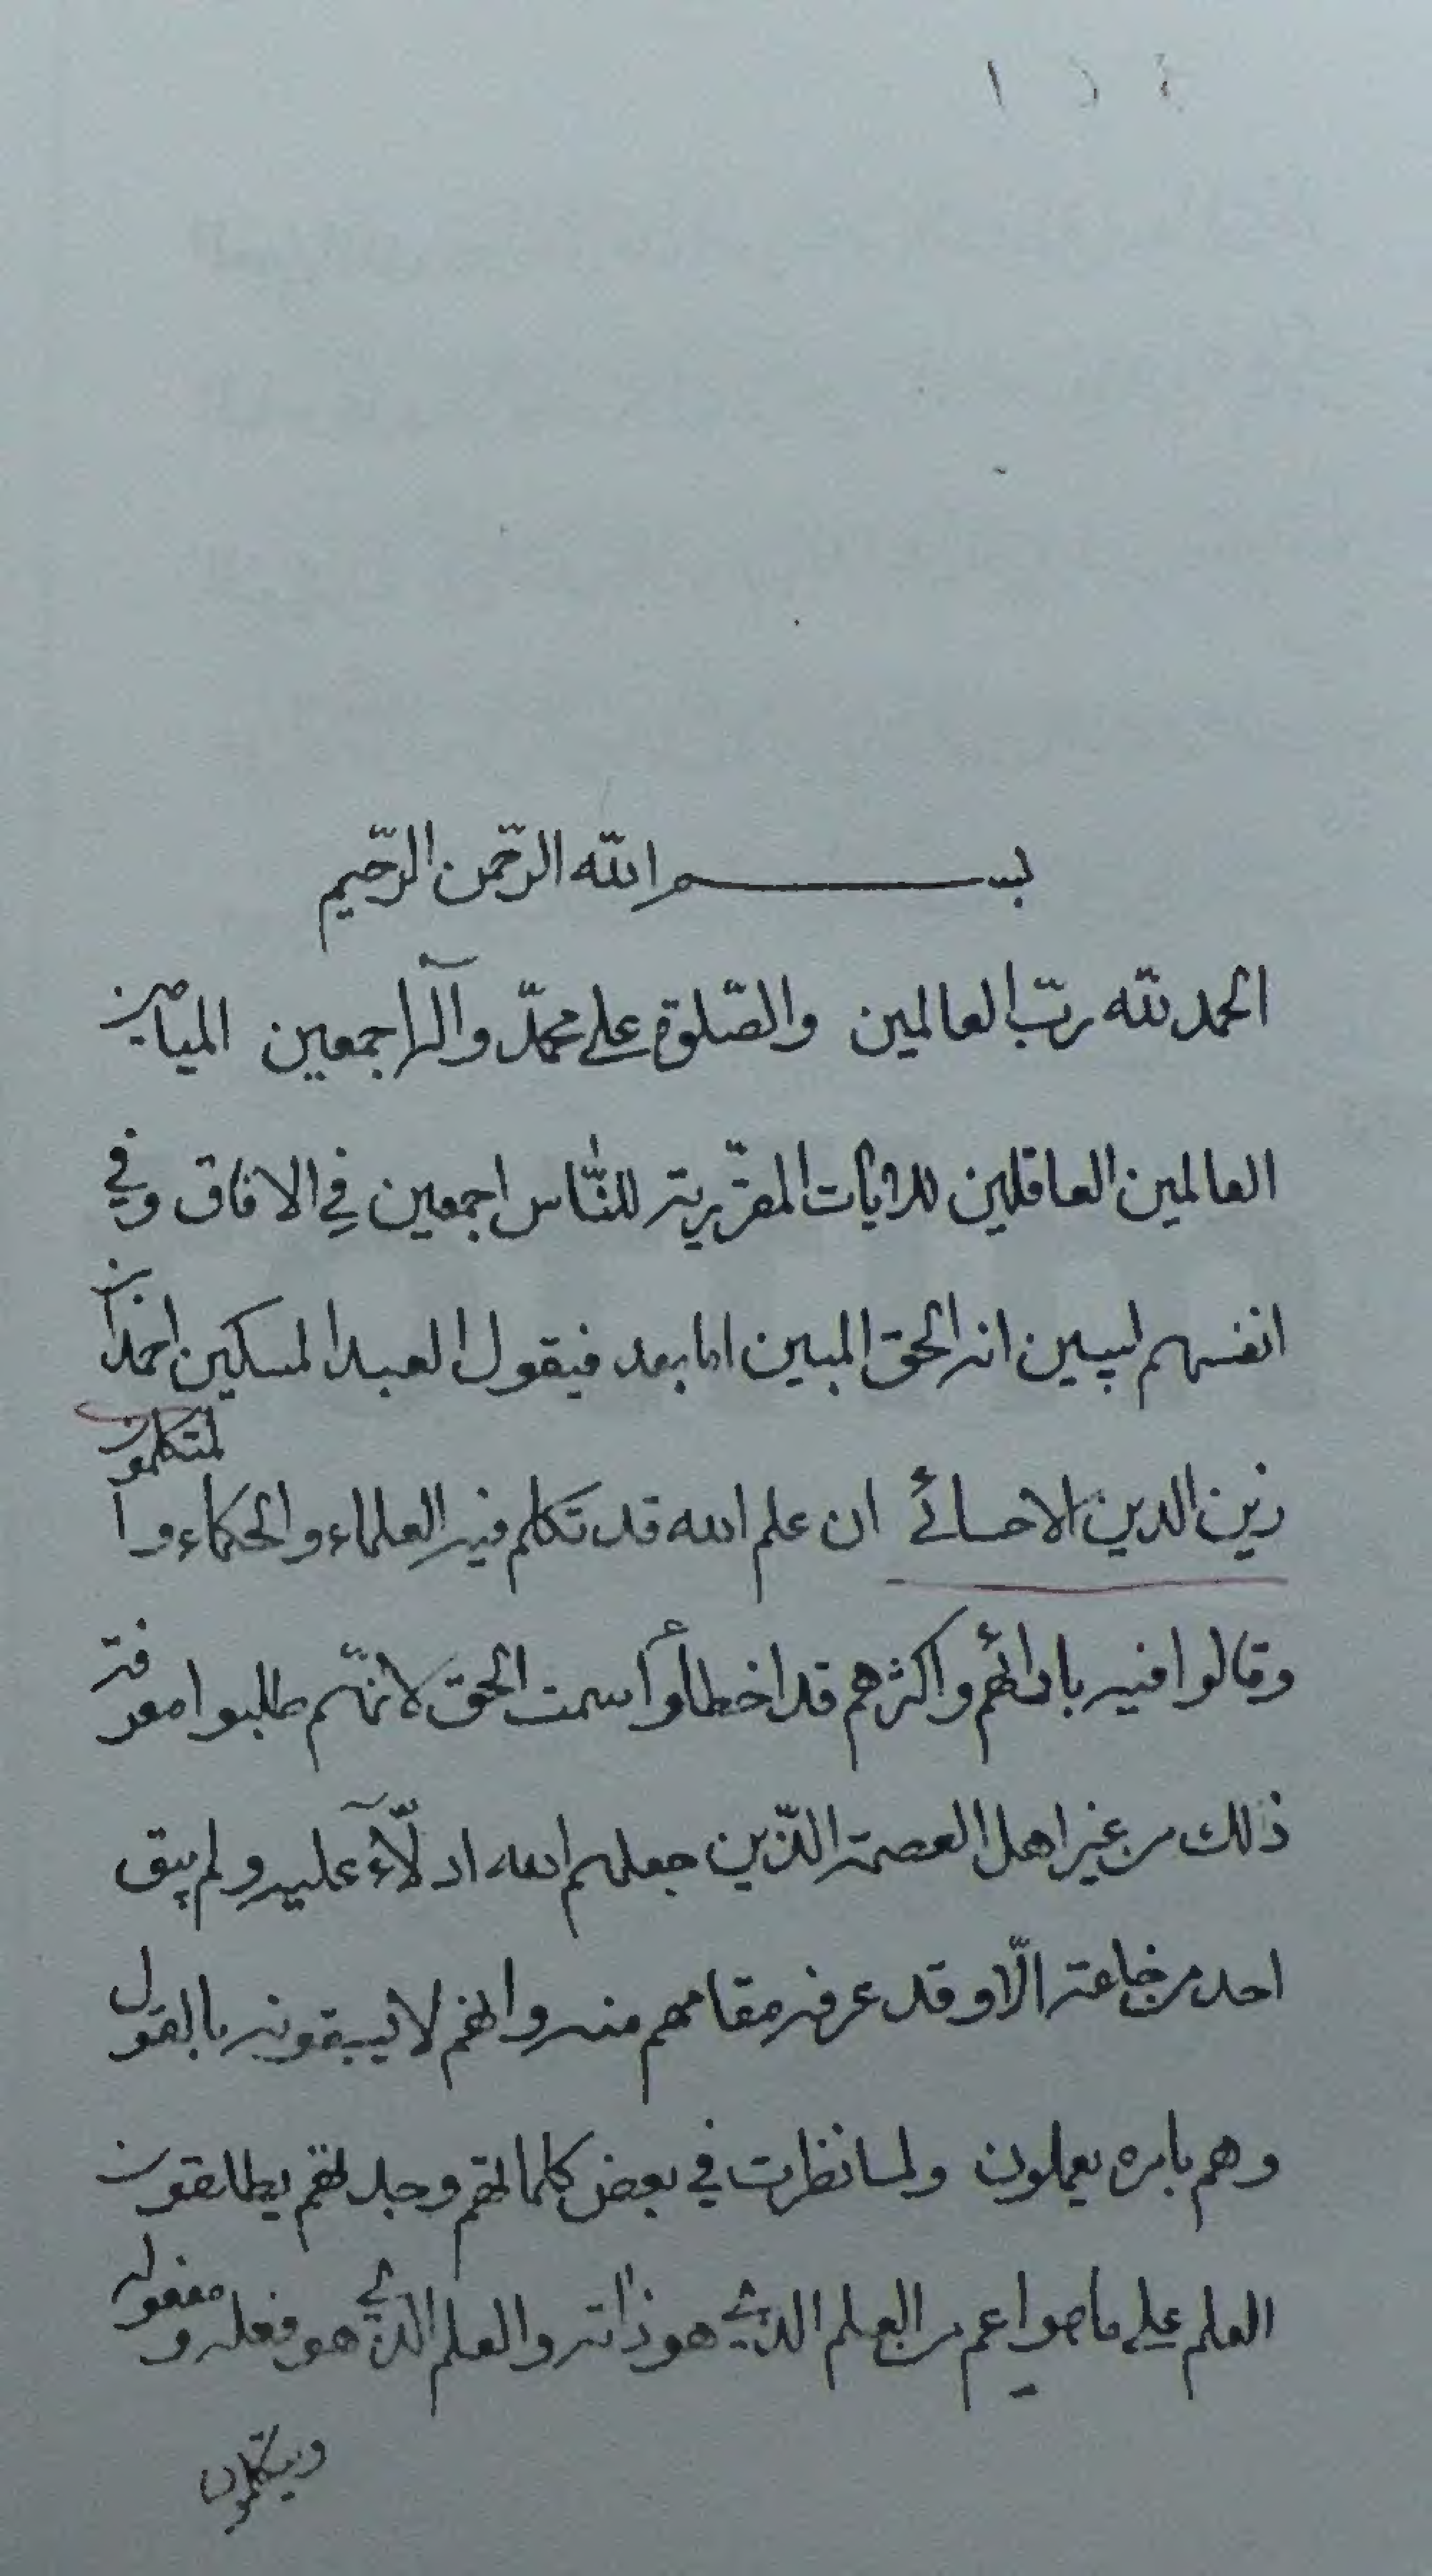 بسم الله الرّحمن الرّحيم
الحمد لله ربّ العالمين والصّلوة على محمّد وآله اجمعين الميامين
العالمين العاقلين للايات المقرّرية للنّاس اجمعين في الافاق وفي
انفسهم ليبين انه الحق المبين اما بعد فيقول العبد المسكين احمد بن
زين الدين الاحسائي ان علم الله قد تكلم فيه العلماء والحكماء والمتكلمون
وقالوا فيه بارائهم واكثرهم قد اخطأوا سمت الحق لانّهم طلبوا معرفة
ذلك من غير اهل العصمة الذّين جعلهم الله ادلّآء عليه ولم يبق
احد من جماعة الّا وقد عرفه مقامهم منه وانهم لا يسبقونه بالقول
وهم بامره يعملون ولما نظرت في بعض كلماتهم وجدتهم يطلقون
العلم على ما هو اعم من العلم الذي هو ذاته والعلم الذي هو فعله ومفعوله
ويتكلمون